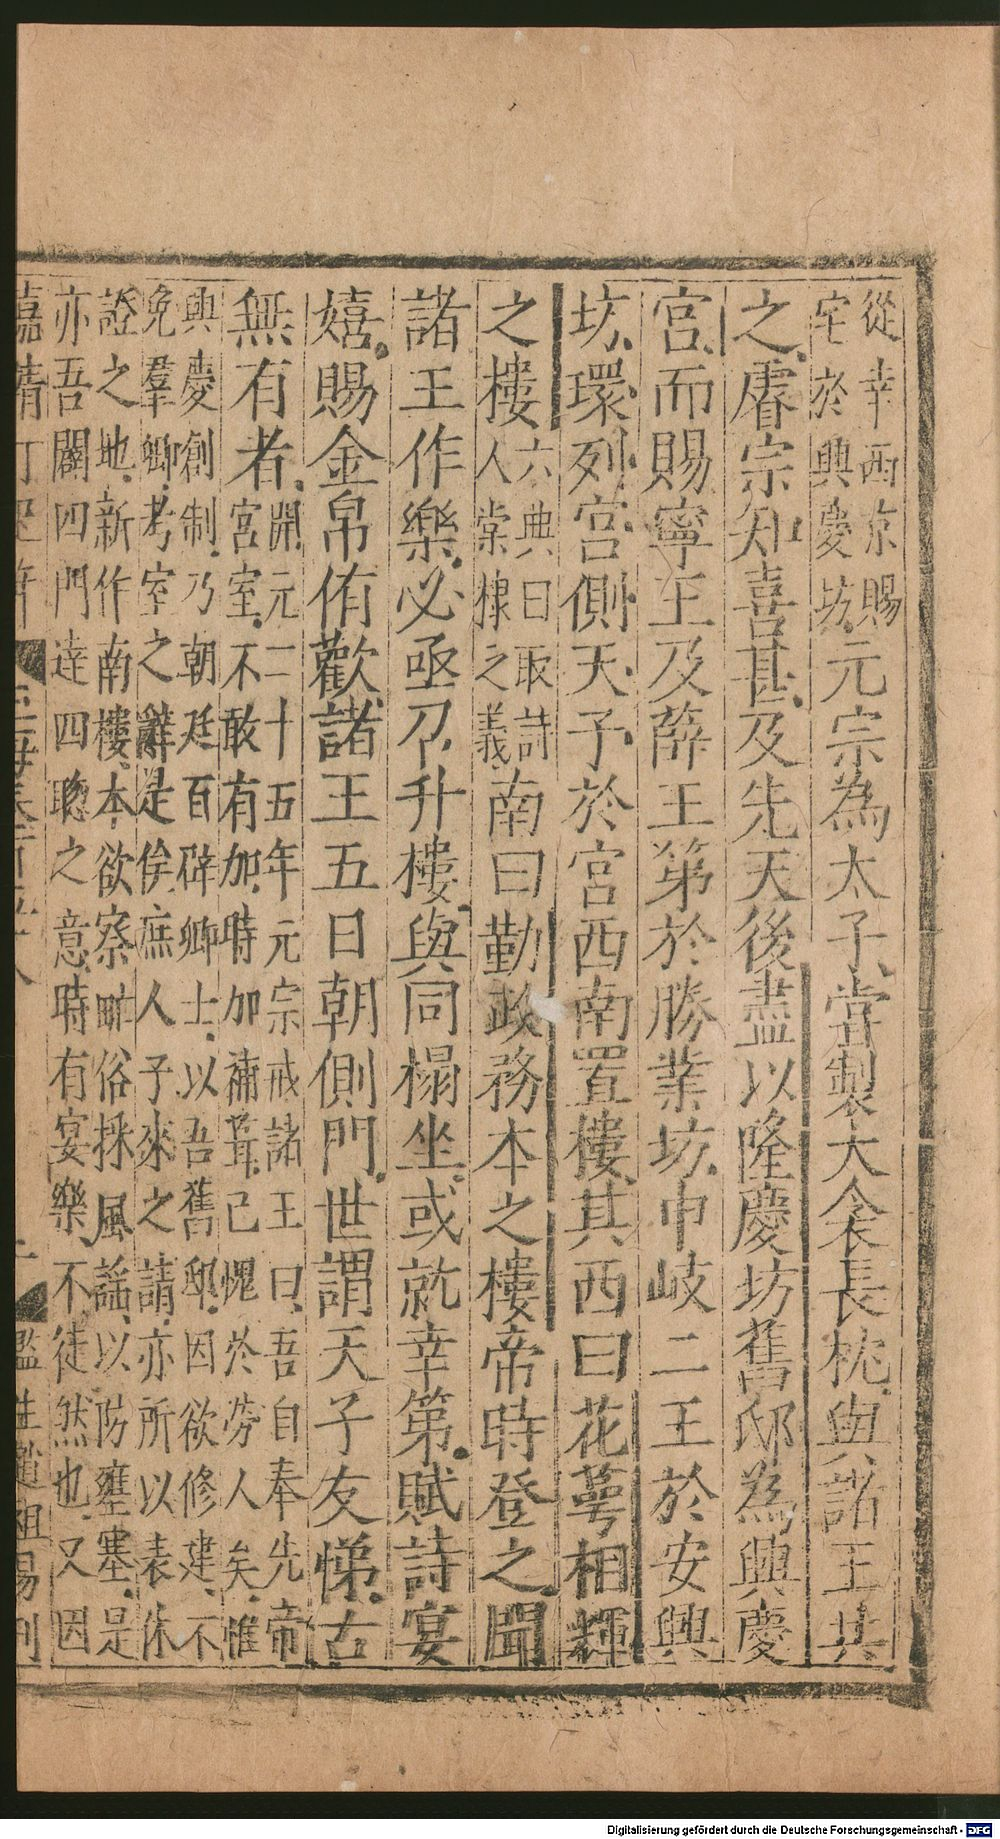 從幸西京賜
宅於興慶坊元宗為太子甞製大衾長枕與諸王共
之睿宗知喜甚及先天後盡以隆慶坊舊邸為興慶
宫而賜寧王及薛王第於勝業坊申岐二王於安興
坊環列宫側天子於宫西南置樓其西曰花萼相輝
之樓六典曰取詩
人棠棣之義南曰勤政務本之樓帝時登之聞
諸王作樂必亟召升樓與同榻坐或就幸第賦詩宴
嬉賜金帛侑歡諸王五日朝側門世謂天子友悌古
無有者開元二十五年元宗戒諸王曰吾自奉先帝
宫室不敢有加時加補葺已愧於勞人矣惟
興慶創制乃朝廷百辟卿士以吾舊邸因欲修建不
免羣卿考室之辭是俟庶人子來之請亦所以表休
證之地新作南樓本欲察甿俗採風謠以防壅塞是
亦吾闢四門達四聰之意時有宴樂不徒然也又因
嘉靖丁巳年
玉海卷一百五十八
監生
Digitalisierung gefördert durch die Deutsche Forschungsgemeinschaft - DFG